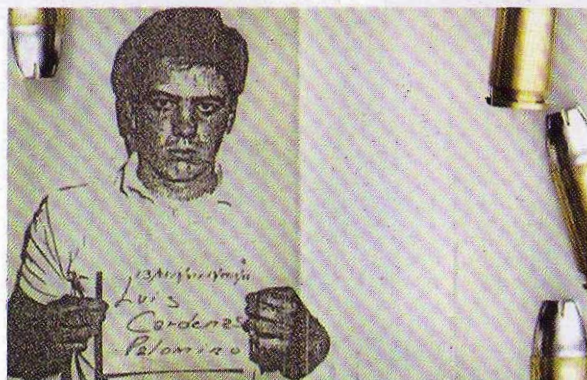 Luis
Cardenas
Palomino